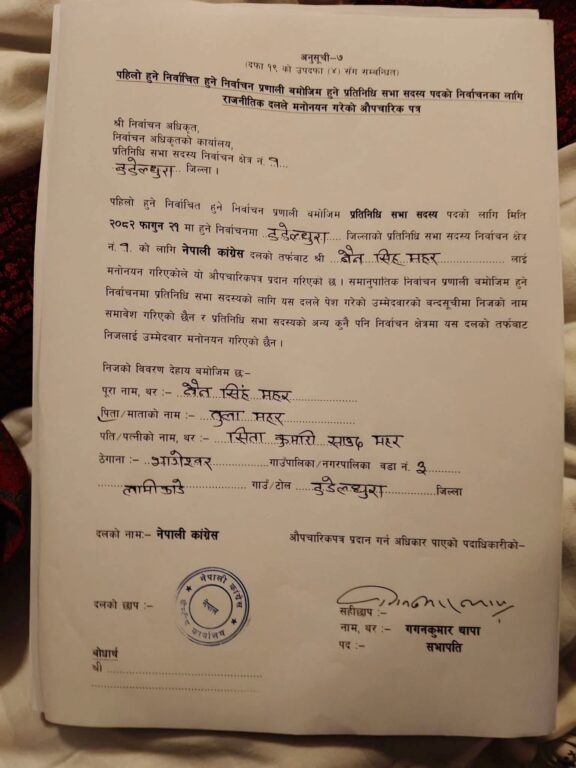 अनुसूची-७
(दफा १९ को उपदफा (४) संग सम्बन्धित)
पहिलो हुने निर्वाचित हुने निर्वाचन प्रणाली बमोजिम हुने प्रतिनिधि सभा सदस्य पदको निर्वाचनका लागि
राजनीतिक दलले मनोनयन गरेको औपचारिक पत्र
श्री निर्वाचन अधिकृत,
निर्वाचन अधिकृतको कार्यालय,
प्रतिनिधि सभा सदस्य निर्वाचन क्षेत्र नं. १...
डडेल्धुरा... जिल्ला ।
पहिलो हुने निर्वाचित हुने निर्वाचन प्रणाली बमोजिम प्रतिनिधि सभा सदस्य पदको लागि मिति
२०८२ फागुन २१ मा हुने निर्वाचनमा ..डडेल्धुरा.... जिल्लाको प्रतिनिधि सभा सदस्य निर्वाचन क्षेत्र
नं. १. को लागि नेपाली कांग्रेस दलको तर्फबाट श्री ...सिंह महर......... लाई
मनोनयन गरिएकोले यो औपचारिकपत्र प्रदान गरिएको छ । समानुपातिक निर्वाचन प्रणाली बमोजिम हुने
निर्वाचनमा प्रतिनिधि सभा सदस्यको लागि यस दलले पेश गरेको उम्मेदवारको बन्दसूचीमा निजको नाम
समावेश गरिएको छैन र प्रतिनिधि सभा सदस्यको अन्य कुनै पनि निर्वाचन क्षेत्रमा यस दलको तर्फबाट
निजलाई उम्मेदवार मनोनयन गरिएको छैन ।
निजको विवरण देहाय बमोजिम छ-
पूरा नाम, थर :- ...सिंह महर.............
पिता/माताको नाम :- ..तुला महर............
पति/पत्नीको नाम, थर :- ...सिता कुमारी साउद महर
ठेगाना :- ..भागेश्वर............गाउँपालिका/नगरपालिका वडा नं. ३..........
......लामीकाँडे........... गाउँ/टोल ..डडेल्धुरा..................जिल्ला
दलको नाम:- नेपाली कांग्रेस
औपचारिकपत्र प्रदान गर्न अधिकार पाएको पदाधिकारीको-
दलको छाप :-
नेपाली कांग्रेस
नेपाल
केन्द्रीय कार्यालय
सहीछाप :-
नाम, थर :- गगनकुमार थापा
पद :- सभापति
बोधार्थ
श्री ...............................................